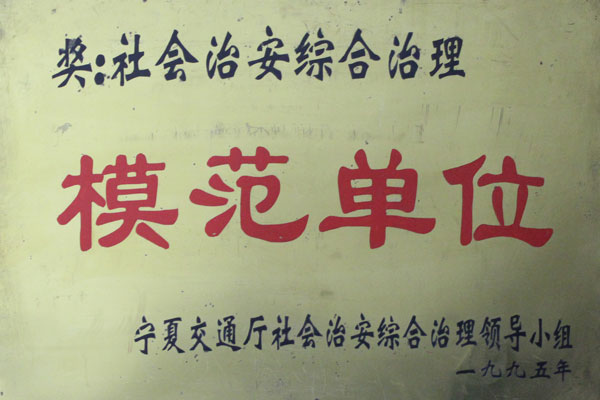 奖:社会治安综合治理
模范单位
宁夏交通厅社会治安综合治理领导小组
一九九五年